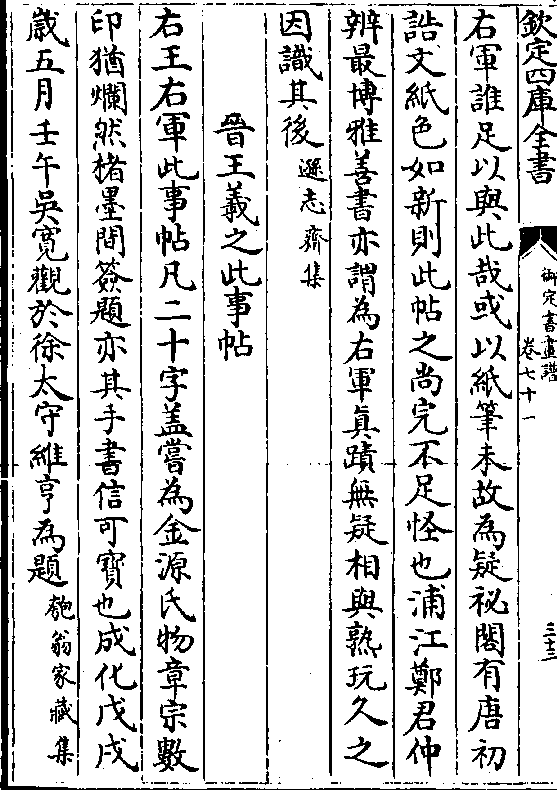 欽定四庫全書
御定書畫譜
卷七十一
三十三
右軍誰足以與此哉或以紙筆未故為疑祕閣有唐初
誥文紙色如新則此帖之尚完不足怪也浦江鄭君仲
辨最博雅善書亦謂為右軍真蹟無疑相與熟玩久之
因識其後遜志齋集
晉王羲之此事帖
右王右軍此事帖凡二十字蓋嘗為金源氏物章宗數
印猶爛然楮墨間簽題亦其手書信可寶也成化戊戌
歲五月壬午吳寬觀於徐太守維亨為題匏翁家藏集